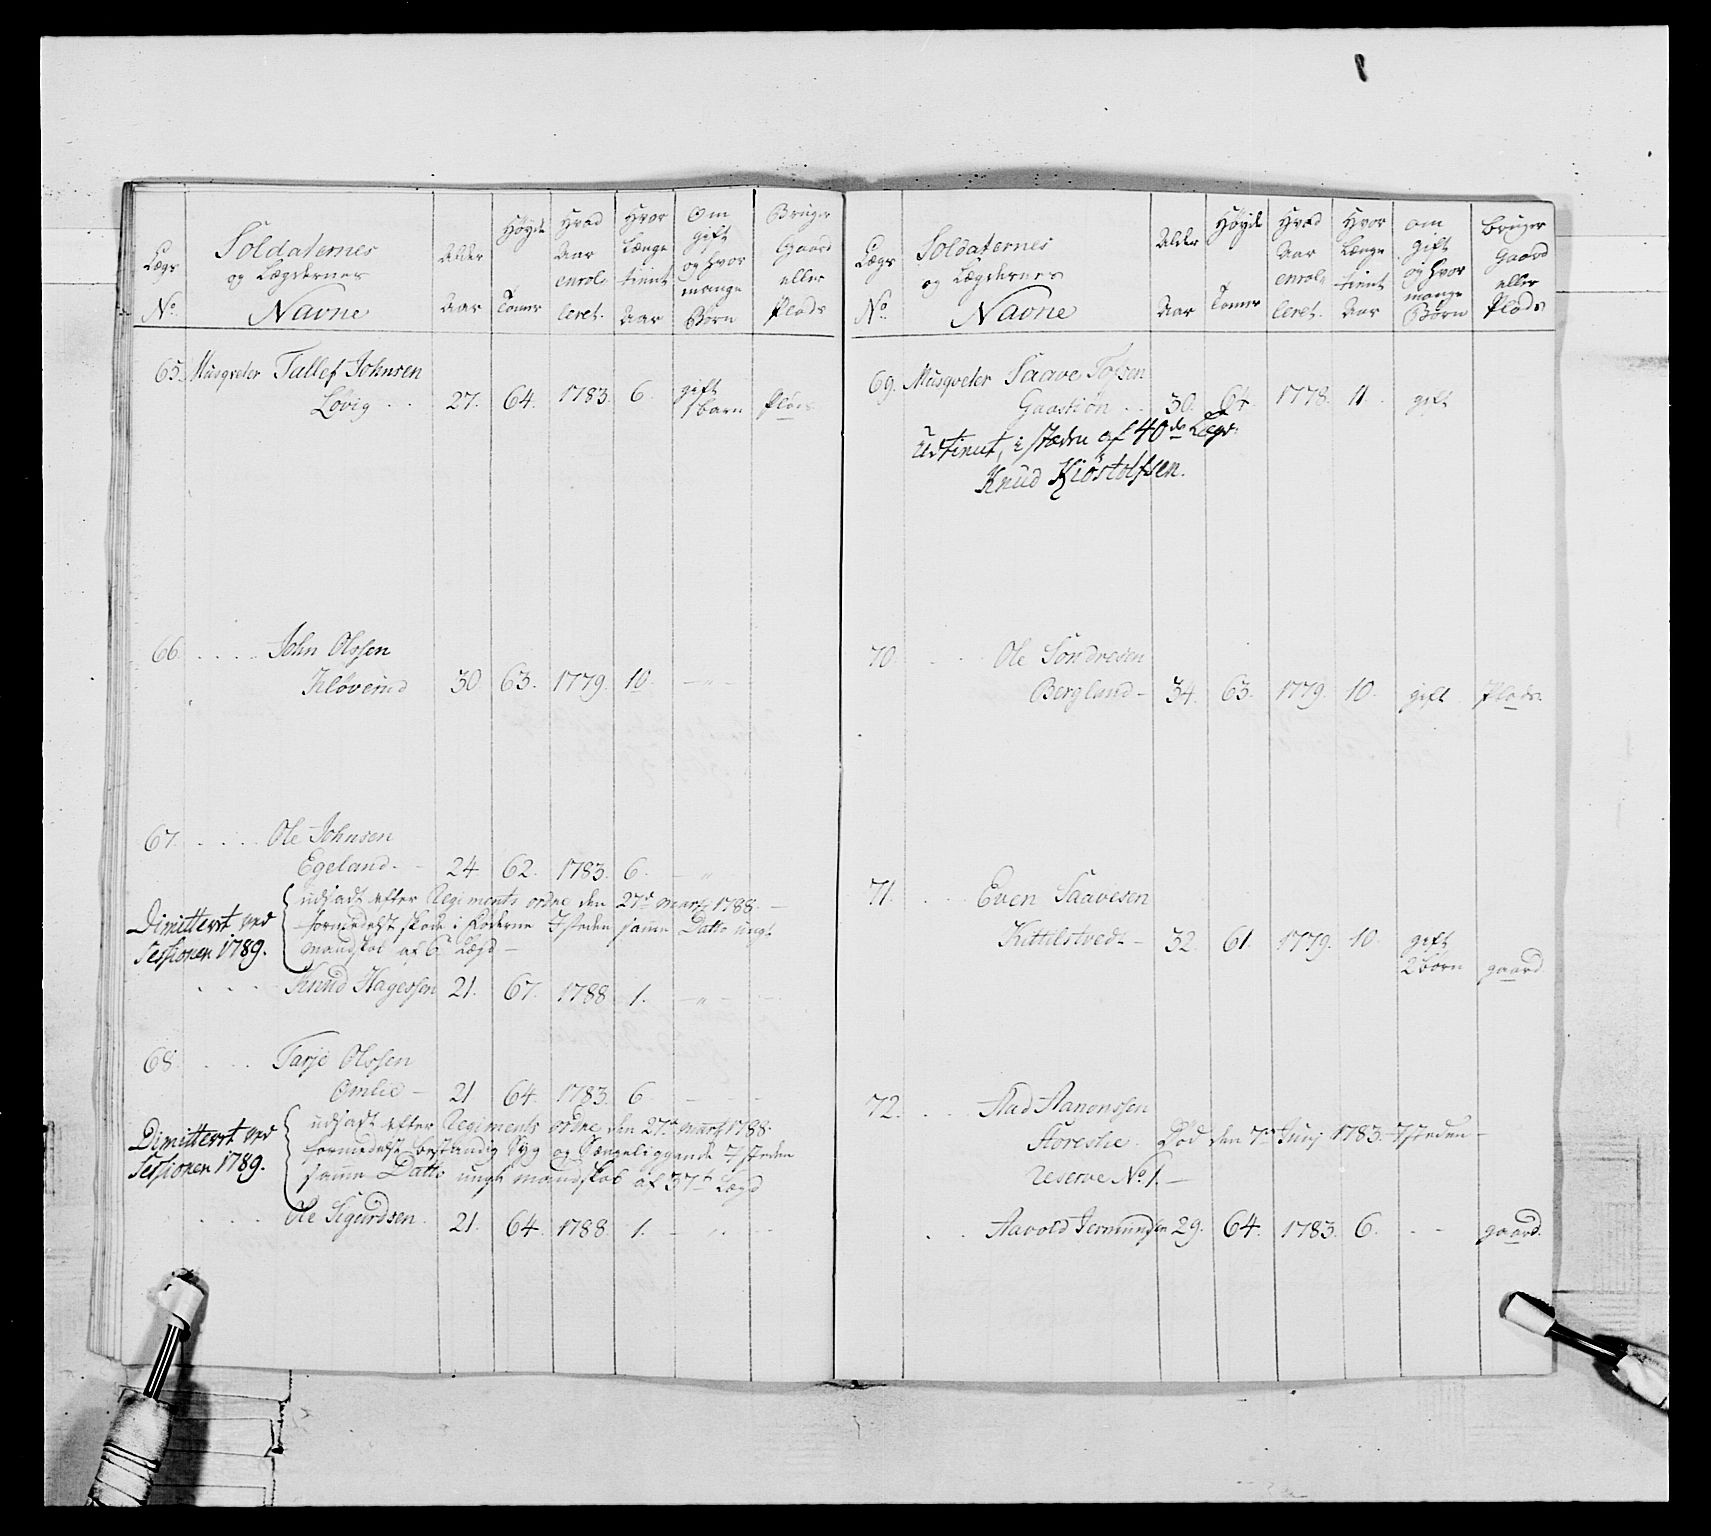 Lægs No. Soldaternes og Lægdernes Navne Alder Aar Høyde Tomer Hvad Aar enrolleret. Hvor Længe tient Aar Om gift og hvor mange Børn Bruger Gaard eller Plads
65. Musqveter Tallef Johnsen
Lövig 27. 64. 1783. 6. gift 1 barn Plads
66. John Olssen
Kløveind 30 63. 1779. 10. — " —
67. Ole Johnsen
Egeland. 24 62. 1783. 6. — "
udsadt efter Regiments ordre den 27de Marts 1788. —
formedelst skade i fødderne I steden samme Datto ungt
mandskab af 6. Lægd —
Dimittert ved
Sessionen 1789.
Knud Hagessen 21. 67. 1788 1. — " —
68. Tarje Olssen
Omlie — 21 64. 1783. 6
udsadt efter Regiments ordre den 27de Marts 1788.
formedelst bestandig Syg og Sængeliggende I steden
samme Datto ungt mandskab af 37te Lægd
Dimittert ved
Sessionen 1789.
Ole Sigurdsen. 21. 64. 1788 1. — " —
Lægs No. Soldaternes og Lægdernes Navne Alder Aar Høyde Tomer Hvad Aar enrolleret. Hvor Længe tient Aar om gift og hvor mange Børn bruger Gaard eller Plads
69. Musqveter Saave Tofsen
Gaastiøn 30. 64. 1778. 11. gift
Udtient, i stæden af 40de Lægd
Knud Kiöstolfsen.
70. Ole Söndresen
Bergland — 34. 63. 1779. 10. gift Plads
71. Even Saavesen
Kittilstvedt — 32. 61. 1779. 10. gift
2 börn gaard
72. Aad Aanonssen
Storeslie. Död den 7de Junj 1783. I steden —
Reserve No. 1. —
Aavold Jermundsen 29. 64. 1783. 6. gaard.